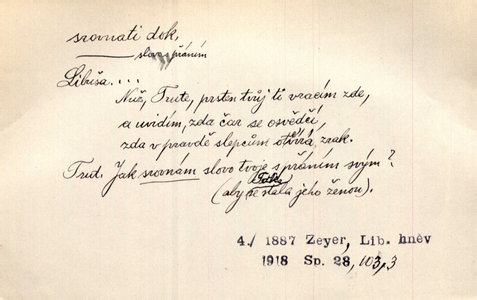 srovnati dok.
slovo s přáním
Libuša....
Nuž, Trute, prsten tvůj ti vracím zde,
a uvidím, zda čar se osvědčí,
zda v pravdě slepcům otvírá zrak.
Trut. Jak srovnám slovo tvoje s přáním svým?
(aby se stala jeho ženou).
4./ 1887 Zeyer, Lib. hněv
1918 Sp. 28, 103,3